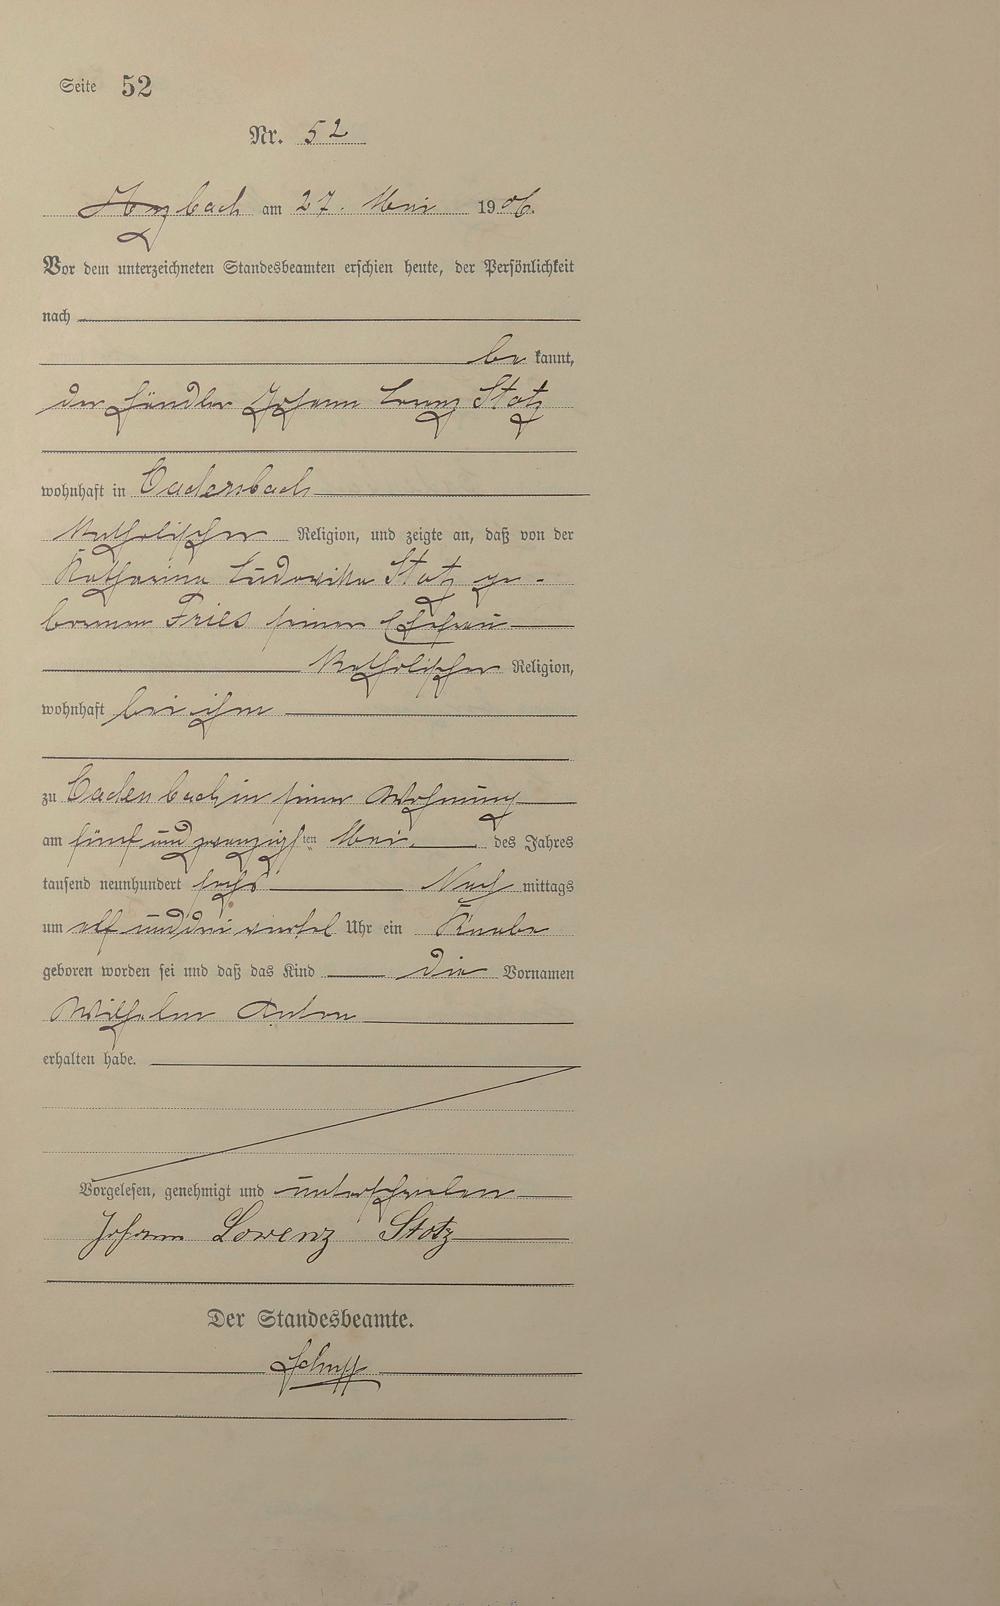 Seite 52
Nr. 52
Arzbach am 27. Mai 1906.
Vor dem unterzeichneten Standesbeamten erschien heute, der Persönlichkeit
nach
be kannt,
der Händler Johann Lorenz Stotz
wohnhaft in Cadenbach
katholischer Religion, und zeigte an, daß von der
Katharina Ludowika Stotz ge-
borenen Fries seiner Ehefrau
katholischer Religion,
wohnhaft bei ihm
zu Cadenbach in seiner Wohnung
am fünf und zwanzigsten Mai des Jahres
tausend neunhundert sechs Nach mittags
um elf und drei viertel Uhr ein Knabe
geboren worden sei und daß das Kind die Vornamen
Wilhelm Anton
erhalten habe.
Vorgelesen, genehmigt und unterschrieben
Johann Lorenz Stotz
Der Standesbeamte.